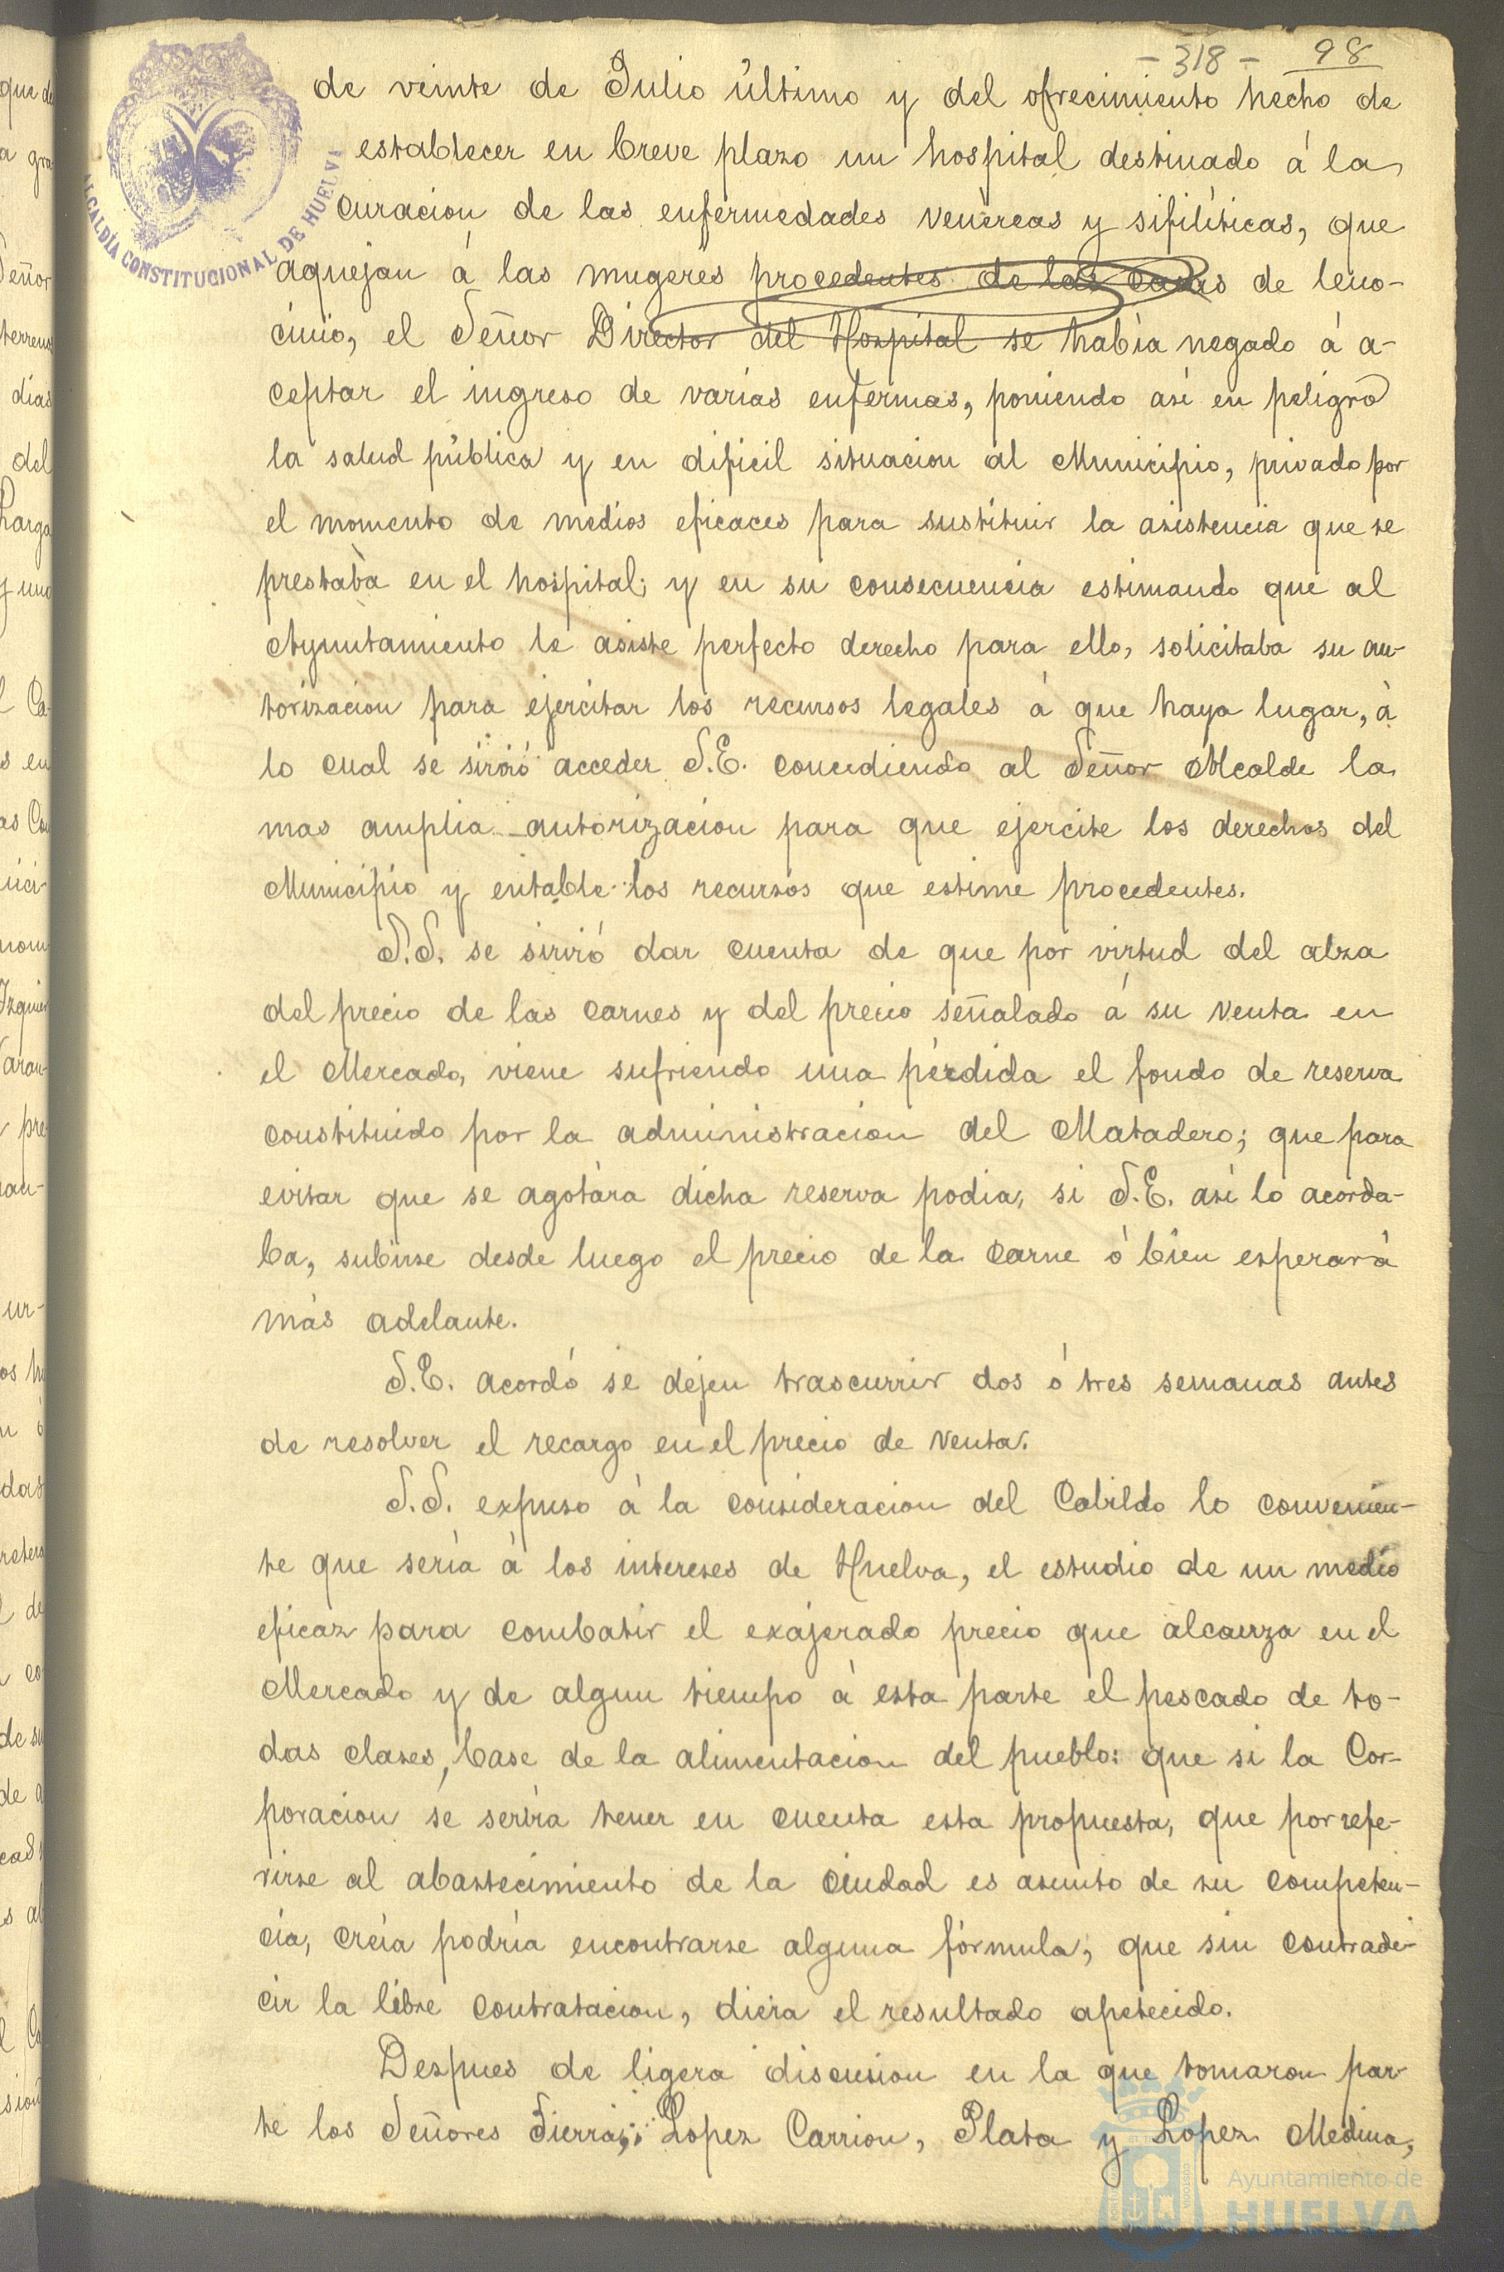 - 318 - 98
de veinte de Julio último y del ofrecimiento hecho de
establecer en breve plazo un hospital destinado á la
curacion de las enfermedades venéreas y sifilíticas, que
aquejan á las mugeres procedentes de las casas de leno-
cinio, el Señor Director del Hospital se había negado á a-
ceptar el ingreso de varias enfermas, poniendo asi en peligro
la salud pública y en dificil situacion al Municipio, privado por
el momento de medios eficaces para sustituir la asistencia que se
prestaba en el hospital; y en su consecuencia estimando que al
Ayuntamiento le asiste perfecto derecho para ello, solicitaba su au-
torizacion para ejercitar los recursos legales á que haya lugar, á
lo cual se sirvió acceder S.E. concediendo al Señor Alcalde la
mas amplia autorizacion para que ejercite los derechos del
Municipio y entable los recursos que estime procedentes.
S.S. se sirvió dar cuenta de que por virtud del alza
del precio de las carnes y del precio señalado á su venta en
el Mercado, viene sufriendo una pérdida el fondo de reserva
constituido por la administracion del Matadero; que para
evitar que se agotára dicha reserva podia, si S.E. asi lo acorda-
ba, subirse desde luego el precio de la carne ó bien esperar á
más adelante.
S.E. acordó se dejen trascurrir dos ó tres semanas antes
de resolver el recargo en el precio de venta.
S.S. expuso á la consideracion del Cabildo lo convenien-
te que sería á los intereses de Huelva, el estudio de un medio
eficaz para combatir el exajerado precio que alcanza en el
Mercado y de algun tiempo á esta parte el pescado de to-
das clases, base de la alimentacion del pueblo: que si la Cor-
poracion se servia tener en cuenta esta propuesta, que por refe-
rirse al abastecimiento de la ciudad es asunto de su competen-
cia, creía podría encontrarse alguna fórmula, que sin contrade-
cir la libre contratacion, diera el resultado apetecido.
Despues de ligera discusion en la que tomaron par-
te los Señores Sierra, Lopez Carrion, Plata y Lopez Medina,
ALCALDÍA CONSTITUCIONAL DE HUELVA
Ayuntamiento de
HUELVA